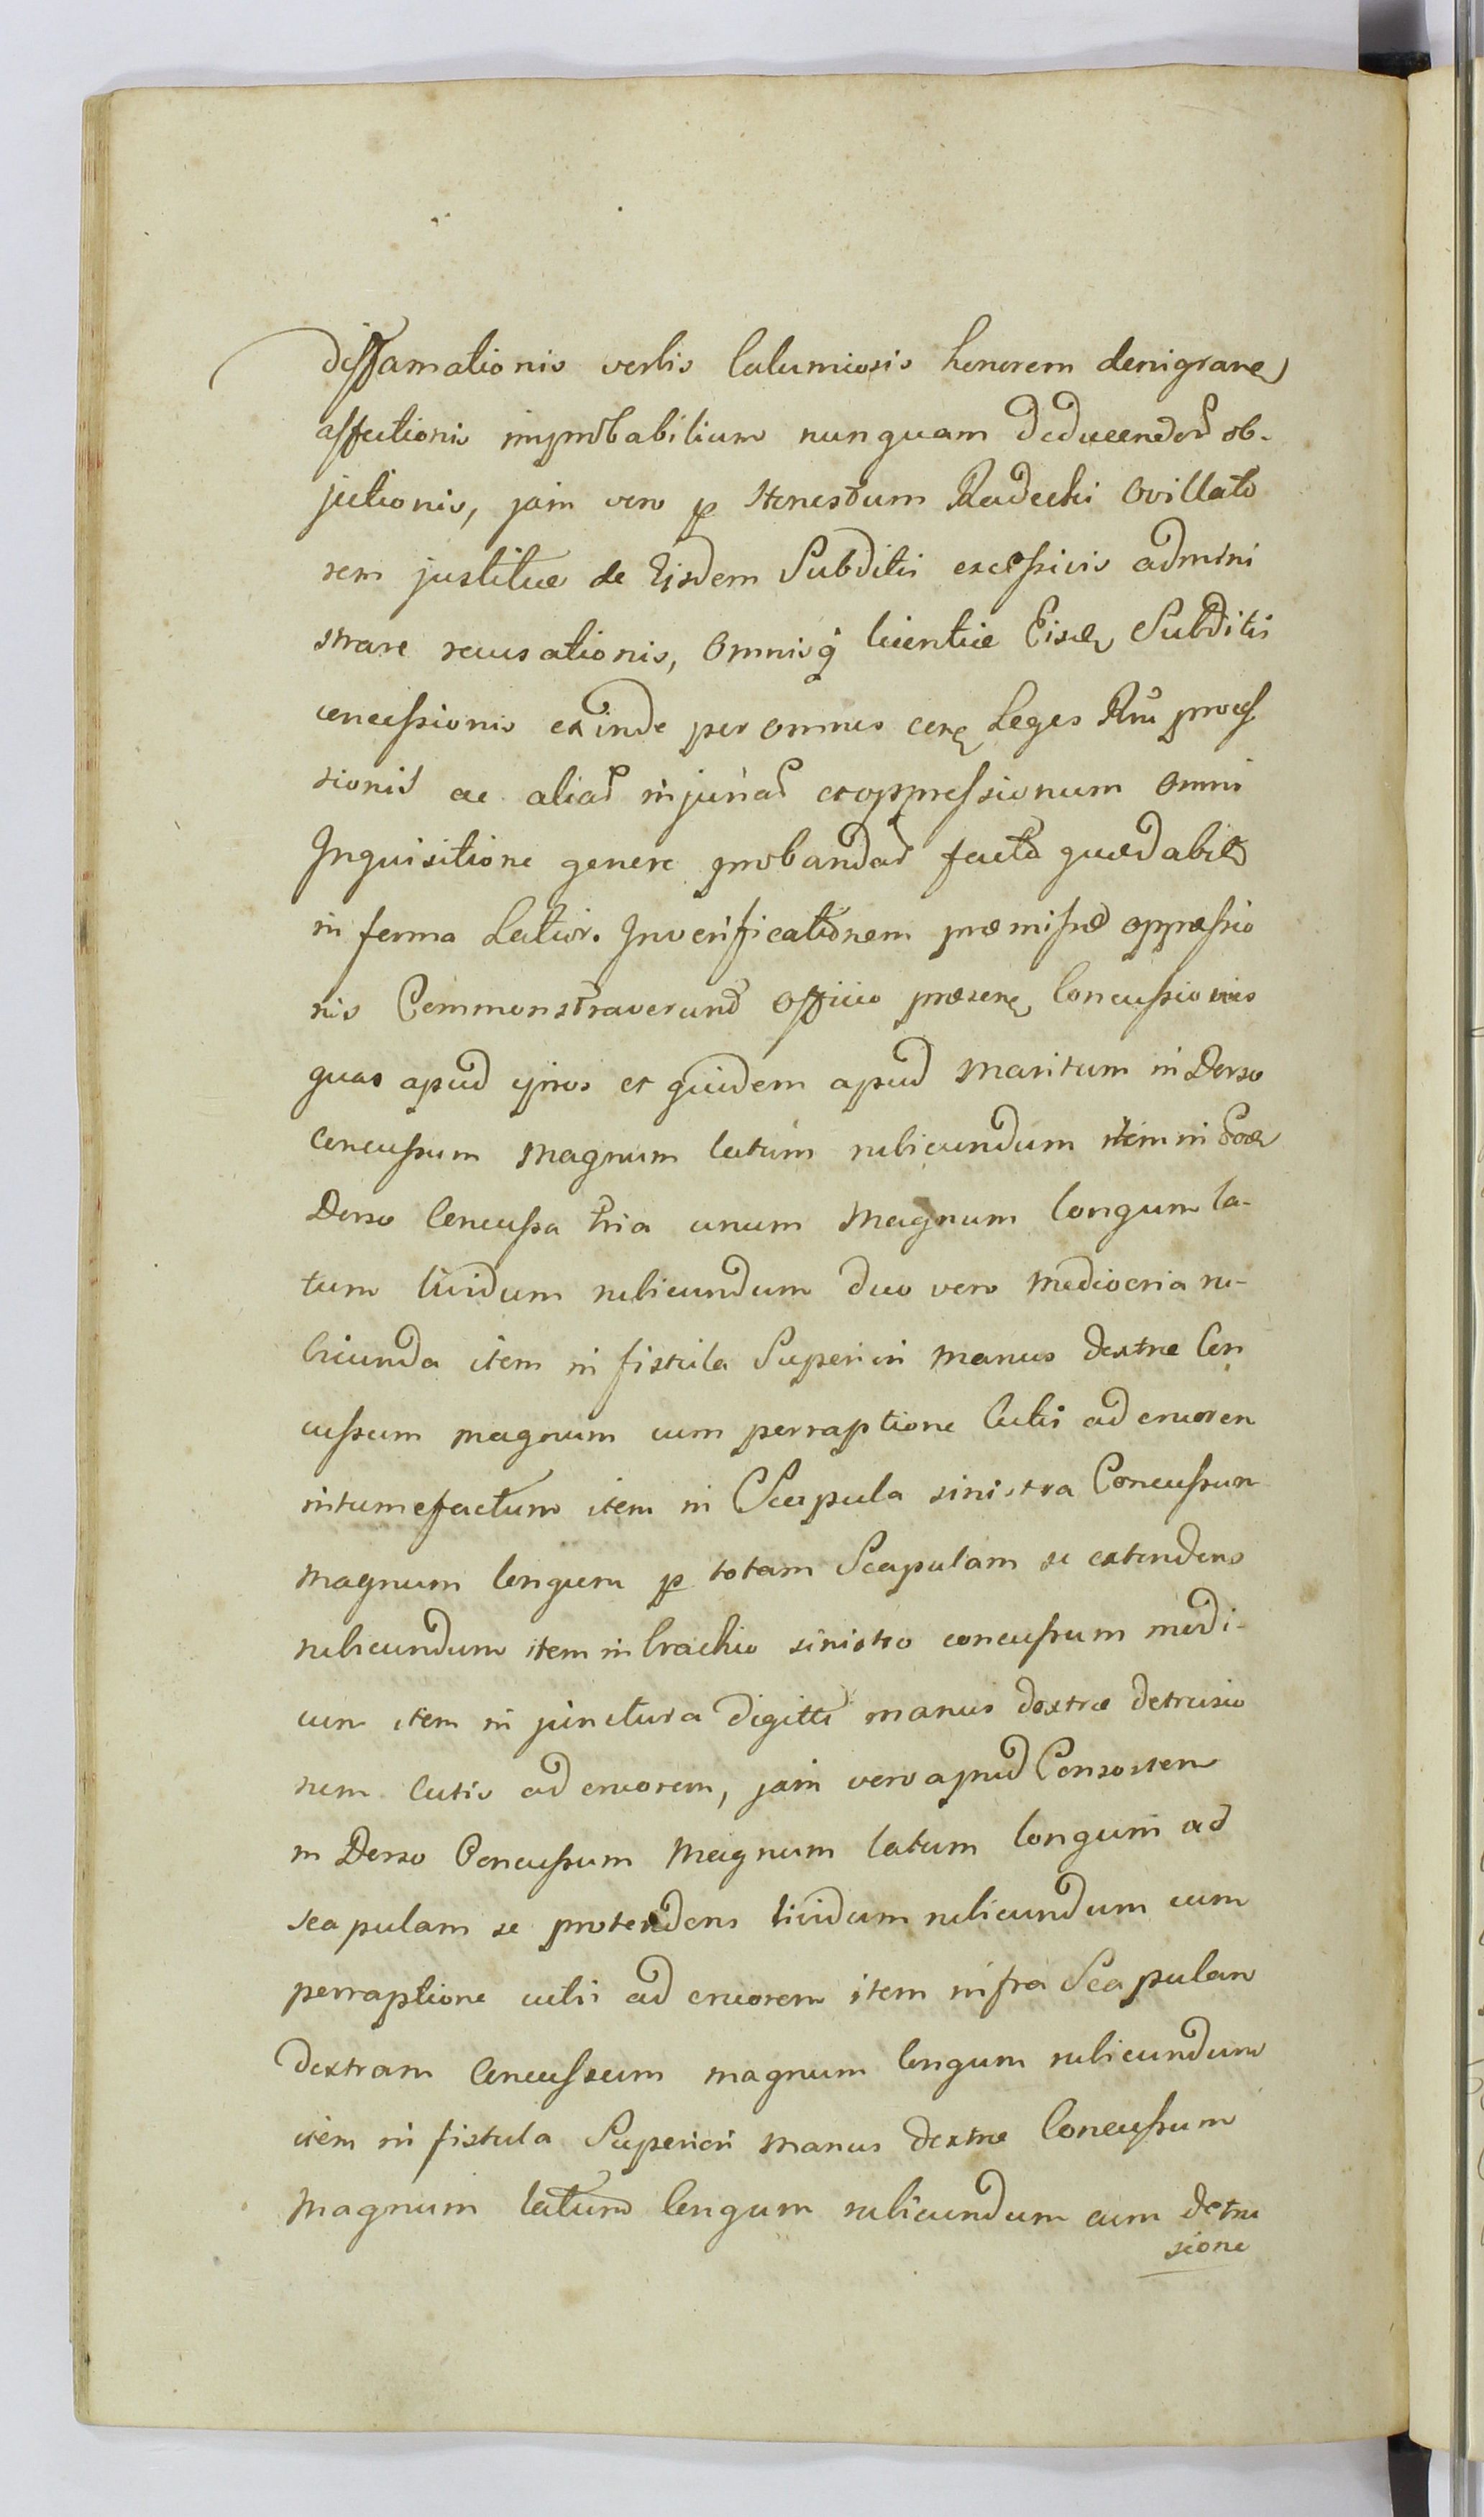 diffamationis verbis Calumiosis honorem denigrane
affectionis improbabilium nunquam deducendor ob-
jectionis, jam vero p Honestum Radecki Ovillato
rem justitiæ de Eisdem Subditis excessivis admini
strare recusationis, Omnisq licentiæ Eisd Subditis
concessionis exinde per omnes cerę Leges Rni proces
sionis ac aliar injuriar et oppressionum Omni
Inquisitione genere probandar facta quærabil
in forma Latior. In verificationem præmissæ oppressio
nis Commonstraverund Officio præsenę Concussiones
quas apud ipsos et quidem apud Maritum in Dorso
Concussum Magnum latum rubicundum item in Eod
Dorso Concussa tria unum Magnum longum la-
tum lividum rubicundum duo vero Mediocria ru-
bicunda item in fistula Superiori manus dextræ Con
cussum magnum cum perraptione Cutis ad cruorem
intumefactum item in Scapula sinistra Concussum
magnum longum p totam Scapulam se extendens
rubicundum item in brachio sinistro concussum modi-
cum item in junctura digitti manus dextræ detrusio
nem Cutis ad cruorem, jam vero apud Consortem
in Dorso Concussum Magnum latum longum ad
scapulam se protendens lividum rubicundum cum
perraptione cutis ad cruorem item infra Scapulam
dextram Concussum magnum longum rubicundum
item in fistula Superiori manus dextræ Concussum
Magnum latum longum rubicundum cum detru
sione